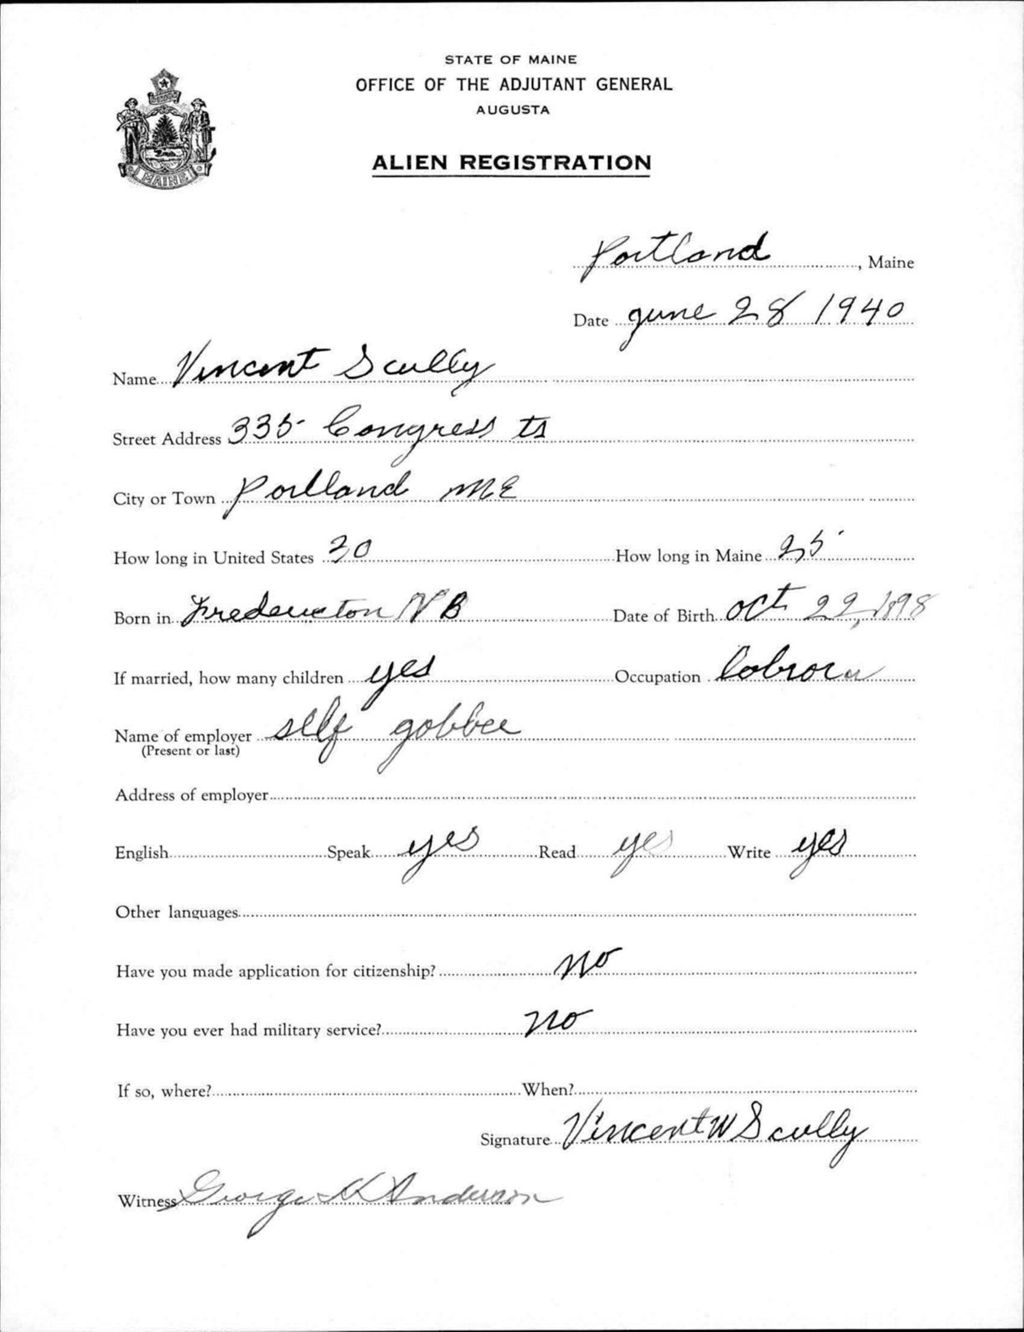 STATE OF MAINE
OFFICE OF THE ADJUTANT GENERAL
AUGUSTA
ALIEN REGISTRATION
MAINE
Portland, Maine
Date June 28 1940
Name Vincent Scully
Street Address 335 Congress ts
City or Town Portland ME
How long in United States 30 How long in Maine 25
Born in Fredericton NB Date of Birth Oct 22, 1898
If married, how many children yes Occupation
Name of employer self gobbee
(Present or last)
Address of employer
English Speak yes Read yes Write yes
Other languages
Have you made application for citizenship? no
Have you ever had military service? no
If so, where? When?
Signature Vincent W Scully
Witness George K Anderson